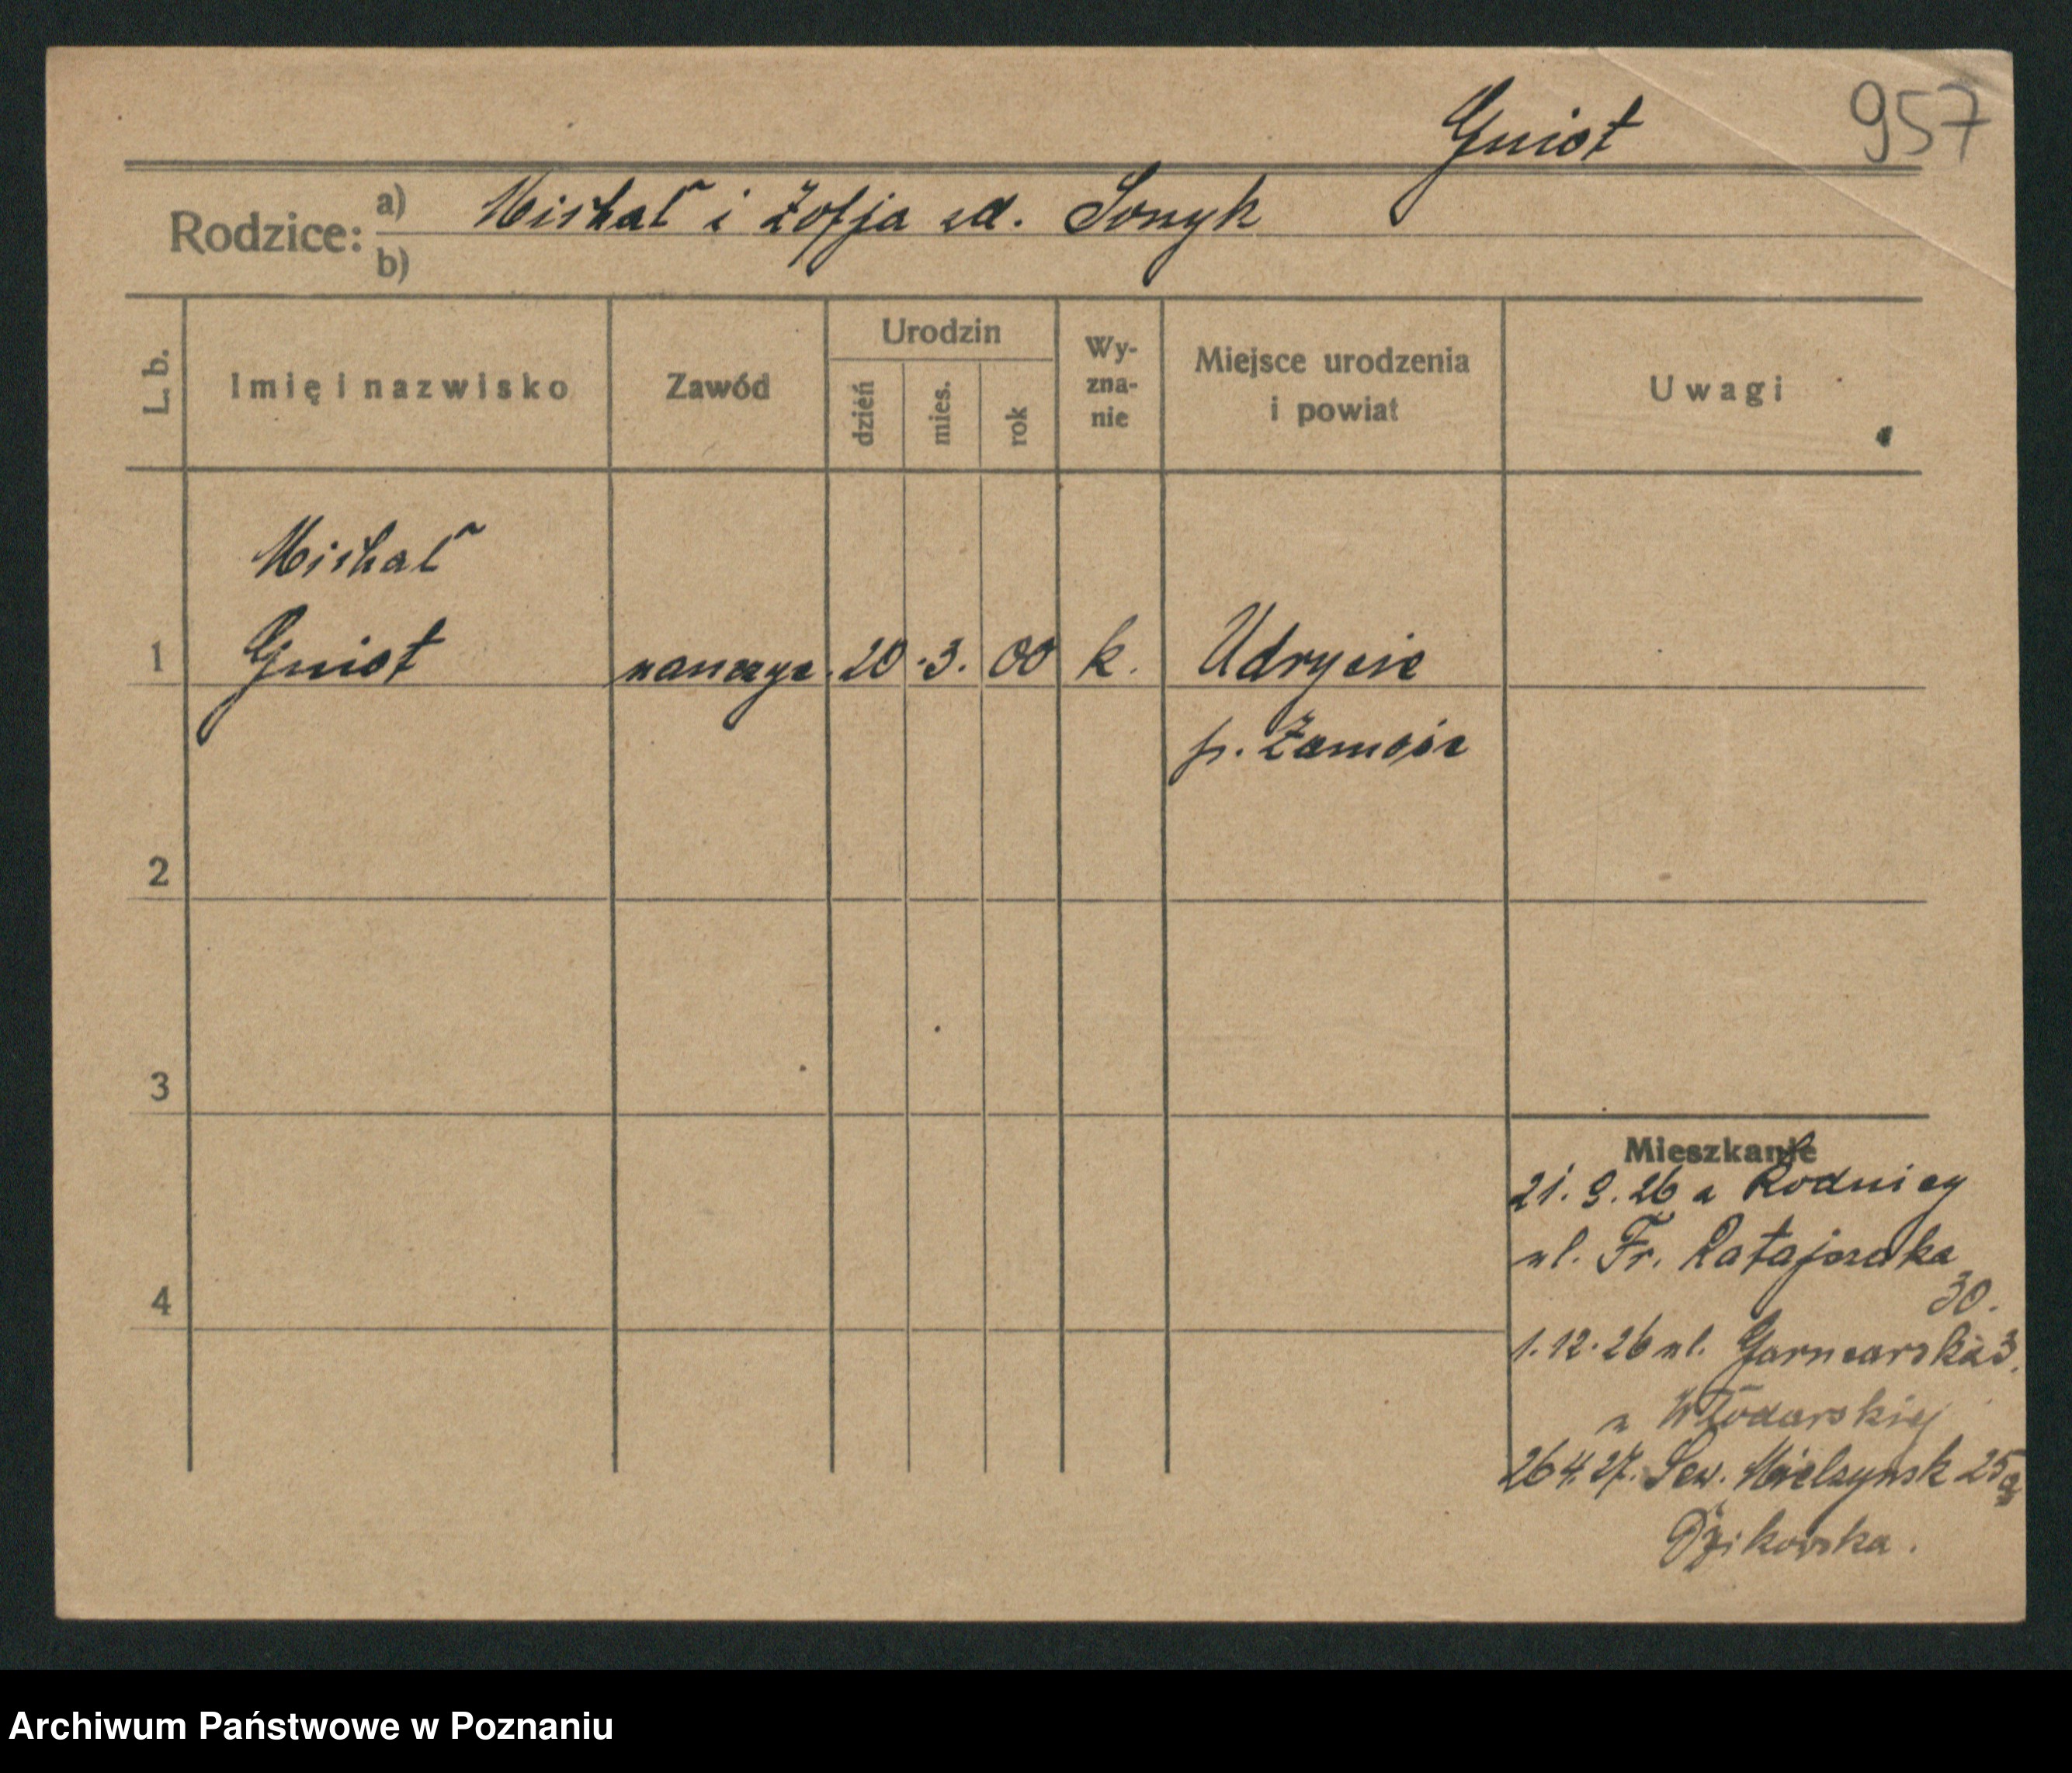 Gniot 957
Rodzice: a) Michał i Zofja zd.
b)
L. b. Imię i nazwisko Zawód Urodzin dzień mies. rok Wy-zna-nie Miejsce urodzenia i powiat Uwagi
Michał
1 Gniot nauczyc. 20. 3. 00 k. Udrycze
p. Zamość
2
3
4
Mieszkanie
21. 9. 26 u
ul. Fr. Ratajczaka
30.
1. 12. 26 ul. Garncarska 3.
u Włodarskiej
26 4. 27. Sew. Mielżyńsk 25
Archiwum Państwowe w Poznaniu